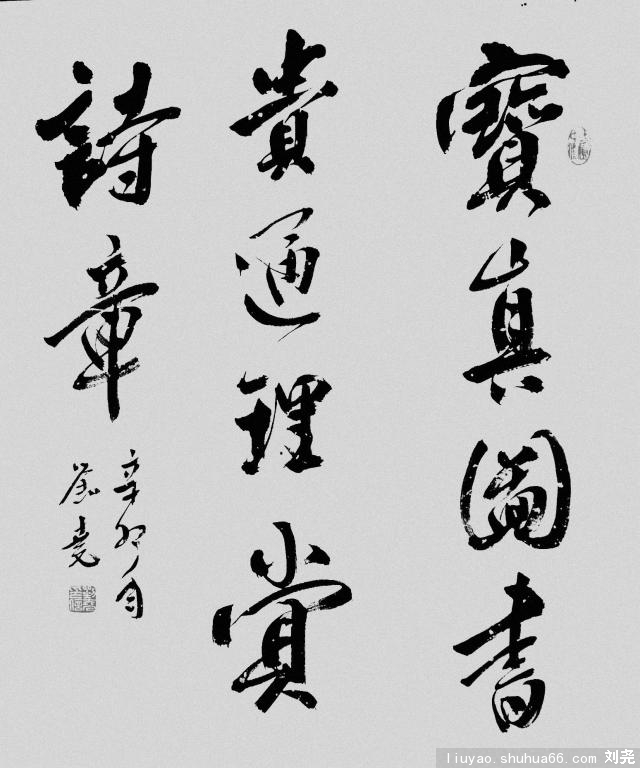 寶真圖書
貴通理賞
詩章
辛卯月
劉堯
liuyao.shuhua66.com 刘尧